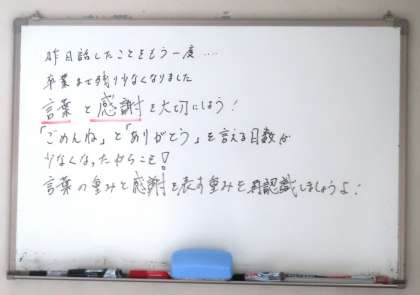 昨日話したことをもう一度....
卒業まで残り少なくなりました
言葉と感謝を大切にしよう!
「ごめんね」と「ありがとう」を言える日数が
少なくなったからこそ!
言葉の重みと感謝を表す重みを再認識しましょうよ!